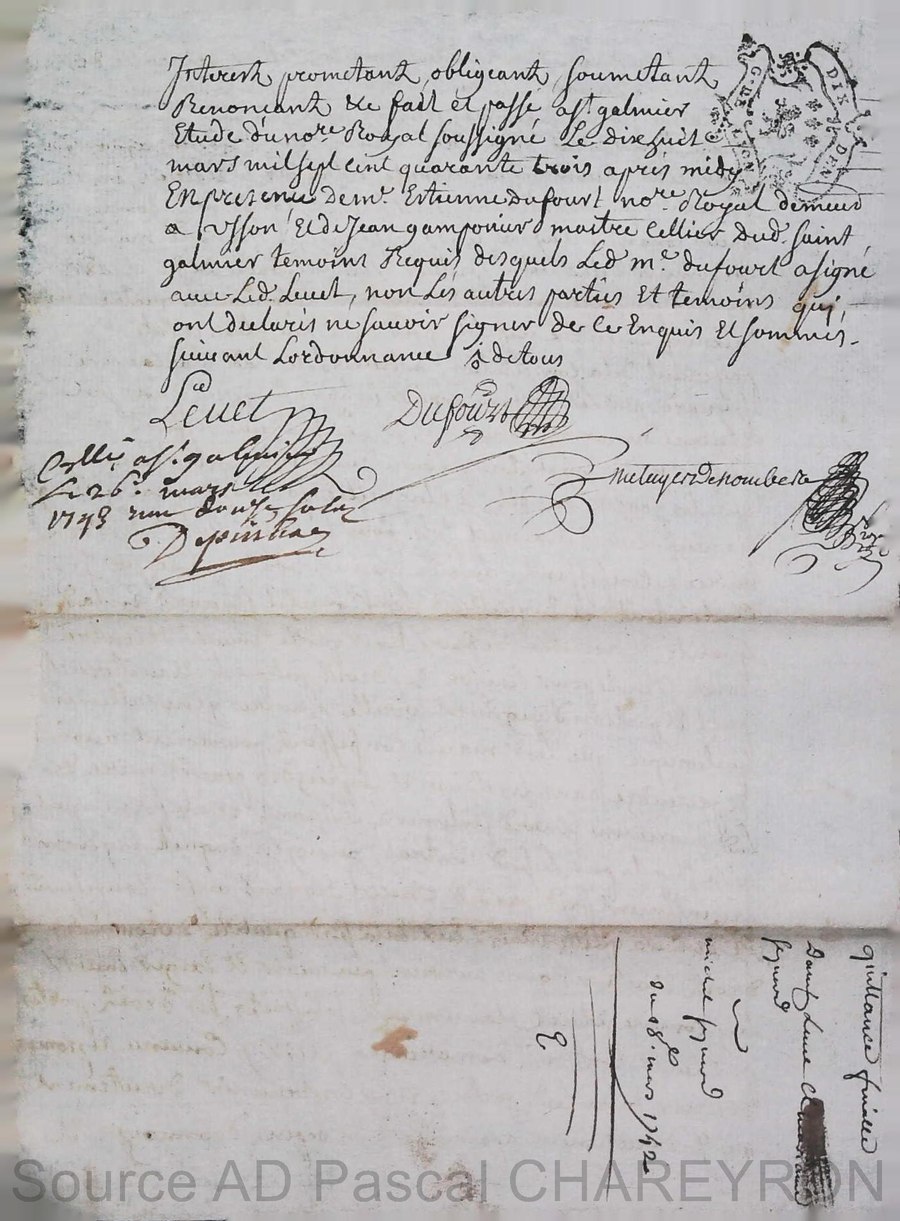 Interest, prometant, obligeant, soumetant
Renonçant &c fait et passé a st galmier
Etude du nore Royal soussigné Le dix huit
mars mil sept cent quarante trois après midy
En presence de mr. Estienne Dufourt nore. Royal demeur
a Usson Et de Jean gamponier maitre Cellier Dud. Saint
galmier temoins Requis desquels Led mr. dufourt a signé
avec Led. Levet, non Les autres parties Et temoins qui
ont declaris ne savoir signer de Ce Enquis Et sommés
suivant Lordonnance de tous
Levet Dufourt
a st. galmier
Le 26e. mars
1743
quittance finalle
michel
du 18e mars 1742
Source AD Pascal CHAREYRON